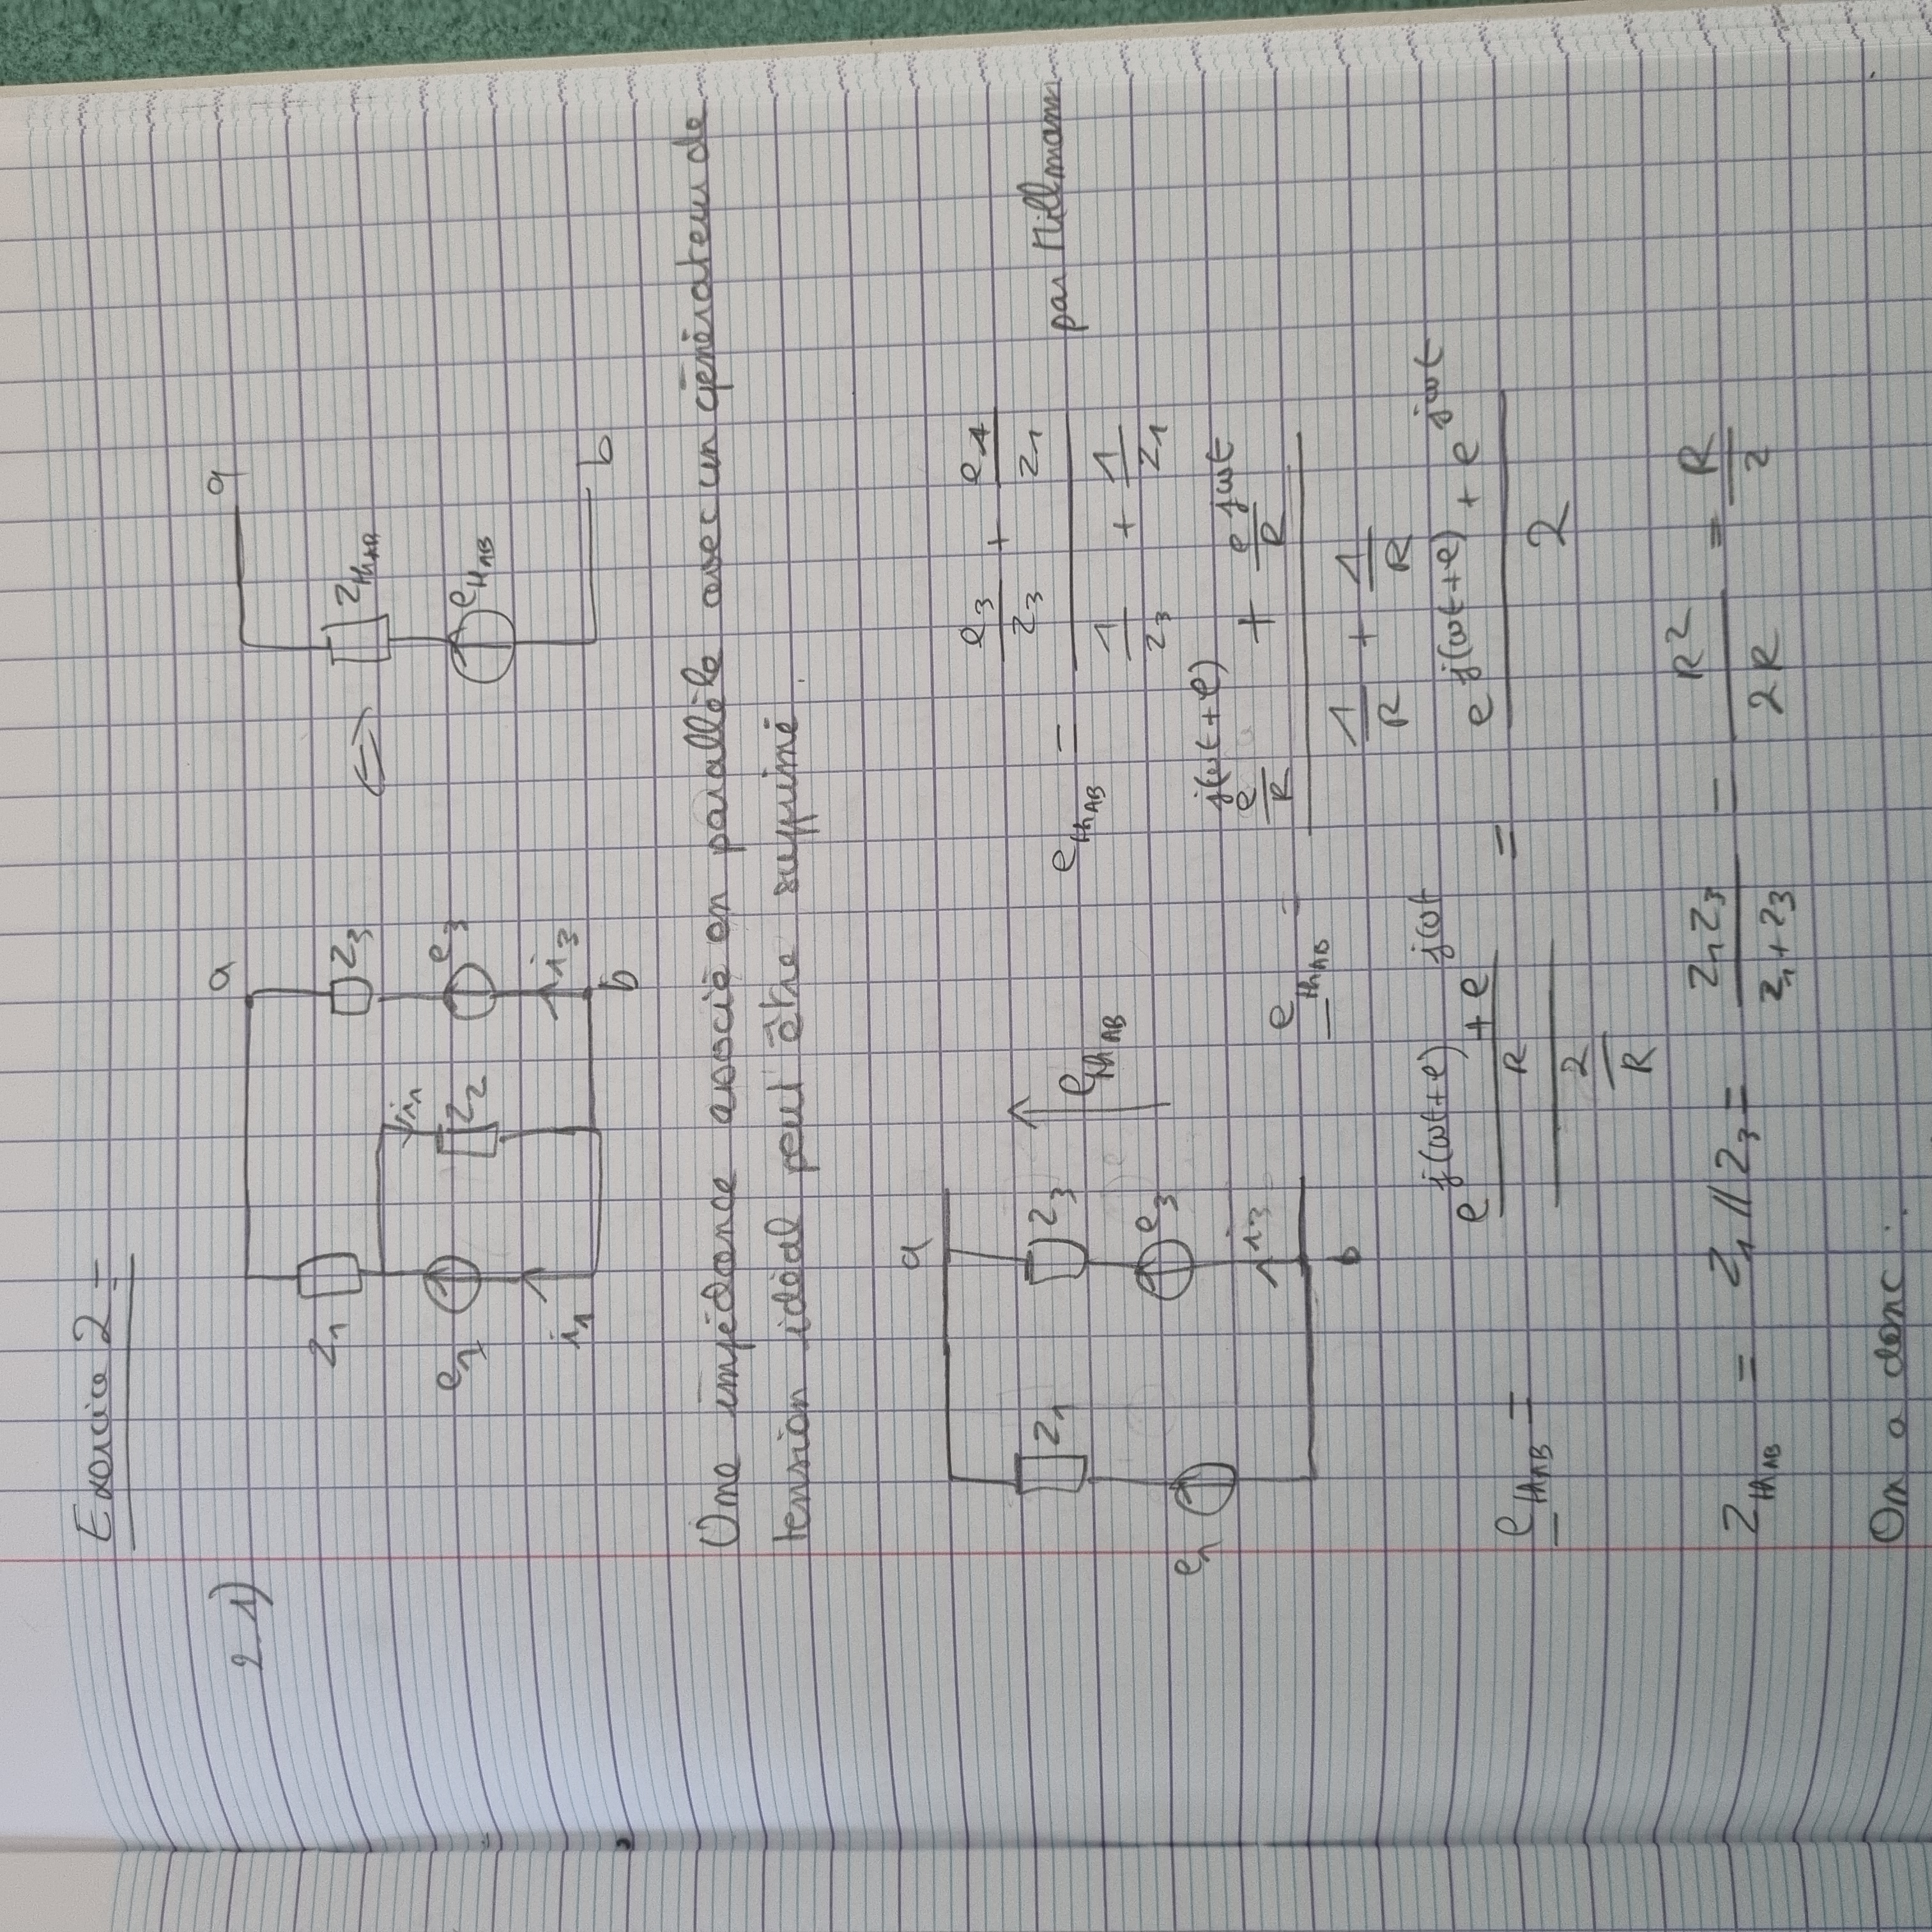 Exercice 2 -
2.1)
a a
Z1 Z3 <=> ZthAB
i1 Z2
e1 e3 eHAB
i1 i3
b b
Une impédance associé en parallèle avec un générateur de
tension idéal peut être supprimé.
a
Z1 Z3 ethAB = (e3/Z3 + e1/Z1) / (1/Z3 + 1/Z1) par Millmann
ethAB
e1 e3
i3
b
ethAB = (e^j(ωt+e)/R + e^jωt/R) / (1/R + 1/R)
ethAB = ((e^j(ωt+e) + e^jωt)/R) / (2/R) = (e^j(ωt+e) + e^jωt) / 2
ZthAB = Z1 // Z3 = Z1Z3 / (Z1+Z3) = R²/2R = R/2
On a donc :